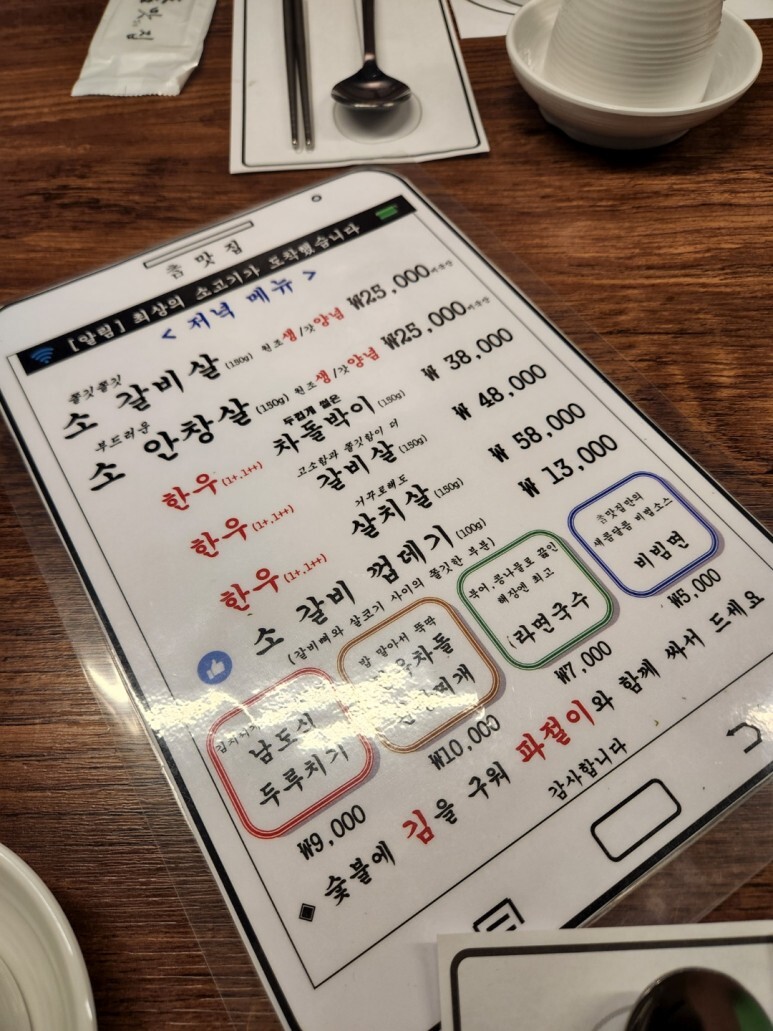 맛집
춈맛집
[알림] 최상의 소고기가 도착했습니다
< 저녁 메뉴 >
쫄깃쫄깃
소 갈비살 (150g) 원조생/갓양념 ₩25,000
부드러운
소 안창살 (150g) 원조생/갓양념 ₩25,000
두껍게 썰은
한우(1+.1++) 차돌박이 (150g) ₩ 38,000
고소함과 쫄깃함이 더
한우(1+.1++) 갈비살 (150g) ₩ 48,000
거꾸로해도
한우(1+.1++) 살치살 (150g) ₩ 58,000
소 갈비 껍데기 (100g) ₩ 13,000
(갈비뼈와 살코기 사이의 쫄깃한 부분)
남도식
두루치기
₩9,000
밥 말아서 뚝딱
₩10,000
북어,콩나물로 끓인
해장엔 최고
(라면국수
₩7,000
춈맛집만의
새콤달콤 비법소스
비빔면
₩5,000
◈ 숯불에 김을 구워 파절이와 함께 싸서 드세요
감사합니다